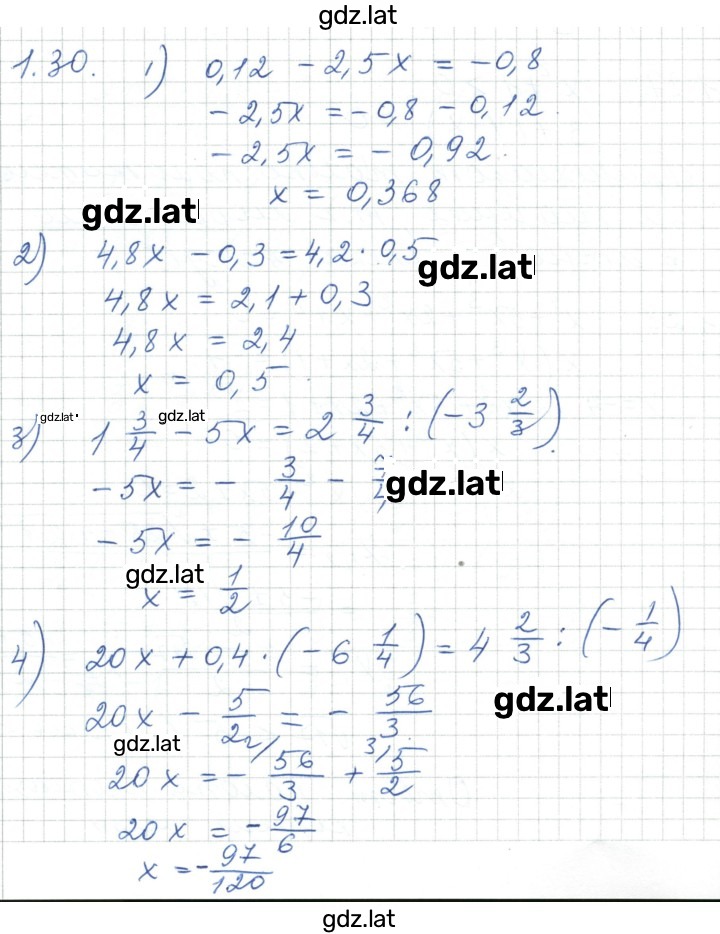 gdz.lat
1.30. 1) 0,12 - 2,5x = -0,8
- 2,5x = - 0,8 - 0,12
- 2,5x = - 0,92
x = 0,368
gdz.lat
2) 4,8x - 0,3 = 4,2 · 0,5
gdz.lat
4,8x = 2,1 + 0,3
4,8x = 2,4
x = 0,5
gdz.lat gdz.lat
3) 1 3/4 - 5x = 2 3/4 : (-3 2/3)
- 5x = - 3/4 -
gdz.lat
- 5x = - 10/4
gdz.lat
x = 1/2
4) 20x + 0,4 · (-6 1/4) = 4 2/3 : (- 1/4)
gdz.lat
20x - 5/2 = - 56/3
gdz.lat
20x = - 56/3 + 5/2
20x = - 97/6
x = - 97/120
gdz.lat